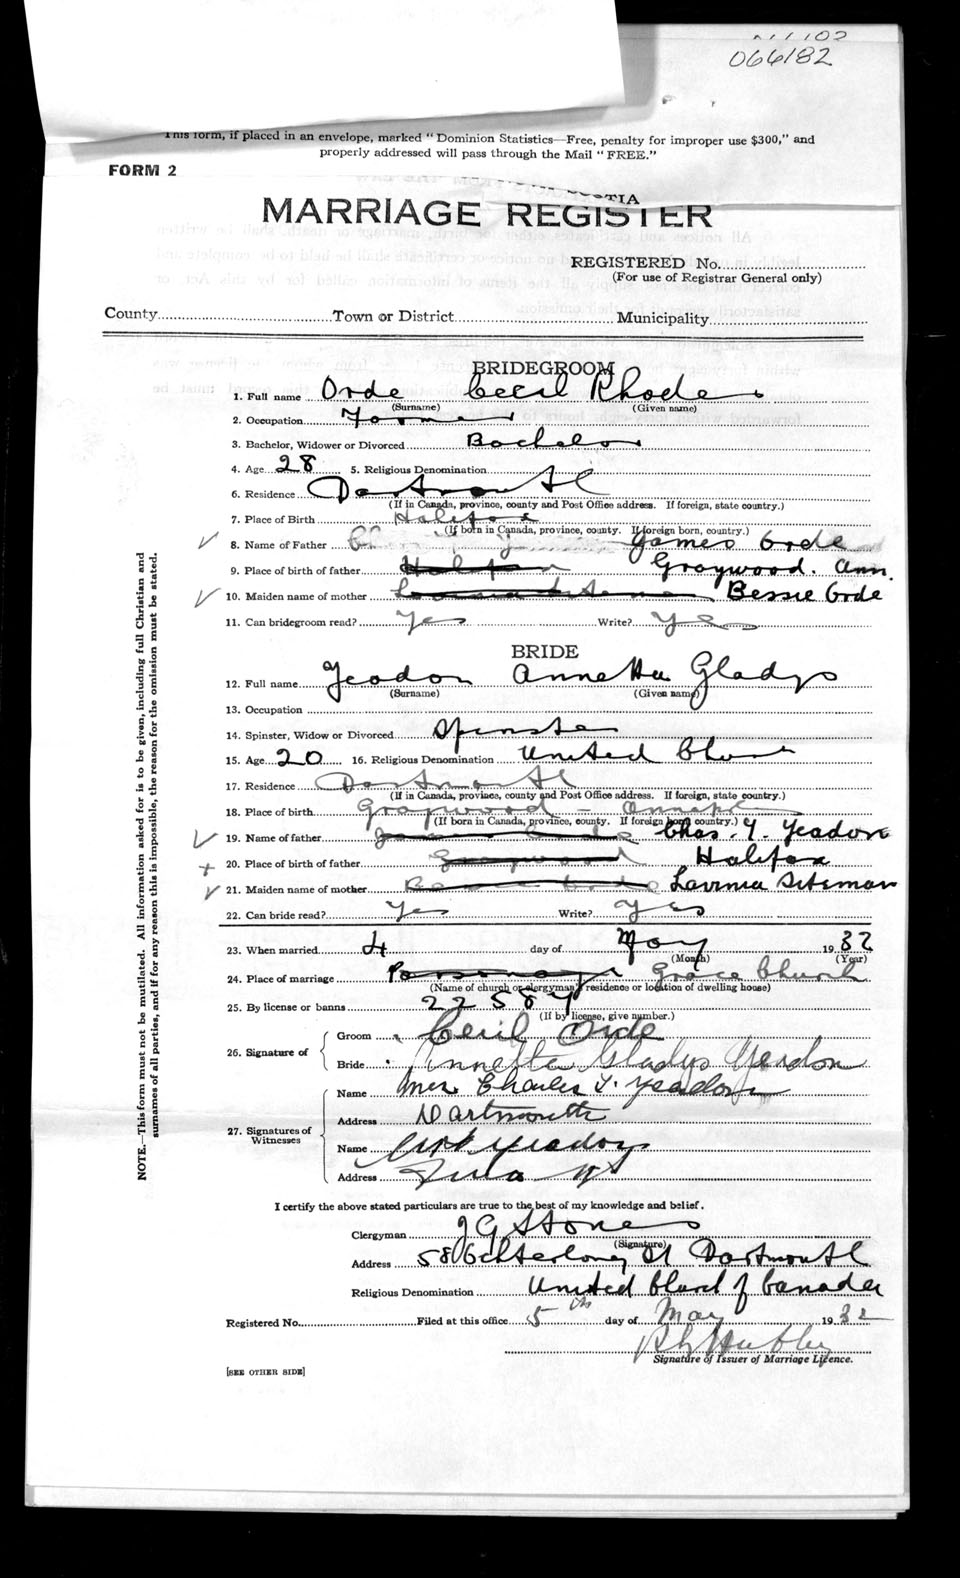 066182
This form, if placed in an envelope, marked "Dominion Statistics—Free, penalty for improper use $300," and
properly addressed will pass through the Mail "FREE."
FORM 2
MARRIAGE REGISTER
REGISTERED No.
(For use of Registrar General only)
County Town or District Municipality
BRIDEGROOM
1. Full name Orde Cecil Rhodes
(Surname) (Given name)
2. Occupation
3. Bachelor, Widower or Divorced Bachelor
4. Age 28 5. Religious Denomination
6. Residence Dartmouth
(If in Canada, province, county and Post Office address. If foreign, state country.)
7. Place of Birth Halifax
(If born in Canada, province, county. If foreign born, country.)
8. Name of Father James Orde
9. Place of birth of father Halifax Graywood. Ann.
10. Maiden name of mother Bessie Orde
11. Can bridegroom read? Yes Write? Yes
BRIDE
12. Full name Yeadon Annetta Gladys
(Surname) (Given name)
13. Occupation
14. Spinster, Widow or Divorced Spinster
15. Age 20 16. Religious Denomination United Church
17. Residence Dartmouth
(If in Canada, province, county and Post Office address. If foreign, state country.)
18. Place of birth Graywood - Annapolis
(If born in Canada, province, county. If foreign born, country.)
19. Name of father Chas. Y. Yeadon
20. Place of birth of father Graywood Halifax
21. Maiden name of mother Bessie Orde Lavinia Siteman
22. Can bride read? Yes Write? Yes
23. When married 4 day of May 1932
(Month) (Year)
24. Place of marriage Parsonage Grace Church
(Name of church or clergyman's residence or location of dwelling house)
25. By license or banns 22584
(If by license, give number.)
26. Signature of Groom Cecil Orde
Bride Annetta Gladys Yeadon
27. Signatures of Witnesses Name Mrs. Charles Y. Yeadon
Address Dartmouth
Name Yeadon
Address
I certify the above stated particulars are true to the best of my knowledge and belief.
Clergyman J G Stones
(Signature)
Address 58 St Dartmouth
Religious Denomination United Church of Canada
Registered No. Filed at this office 5th day of May 1932
Signature of Issuer of Marriage Licence.
[SEE OTHER SIDE]
NOTE.—This form must not be mutilated. All information asked for is to be given, including full Christian and
surnames of all parties, and if for any reason this is impossible, the reason for the omission must be stated.